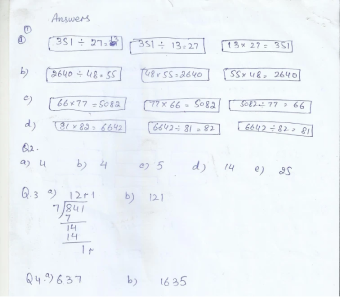 Answers
①
a) 351 ÷ 27 = 13 351 ÷ 13 = 27 13 × 27 = 351
b) 2640 ÷ 48 = 55 48 × 55 = 2640 55 × 48 = 2640
c) 66 × 77 = 5082 77 × 66 = 5082 5082 ÷ 77 = 66
d) 81 × 82 = 6642 6642 ÷ 81 = 82 6642 ÷ 82 = 81
Q2.
a) 4 b) 4 c) 5 d) 14 e) 25
Q.3 a) 12 r 1 b) 121
7)841
7
14
14
1r
Q4. a) 637 b) 1635